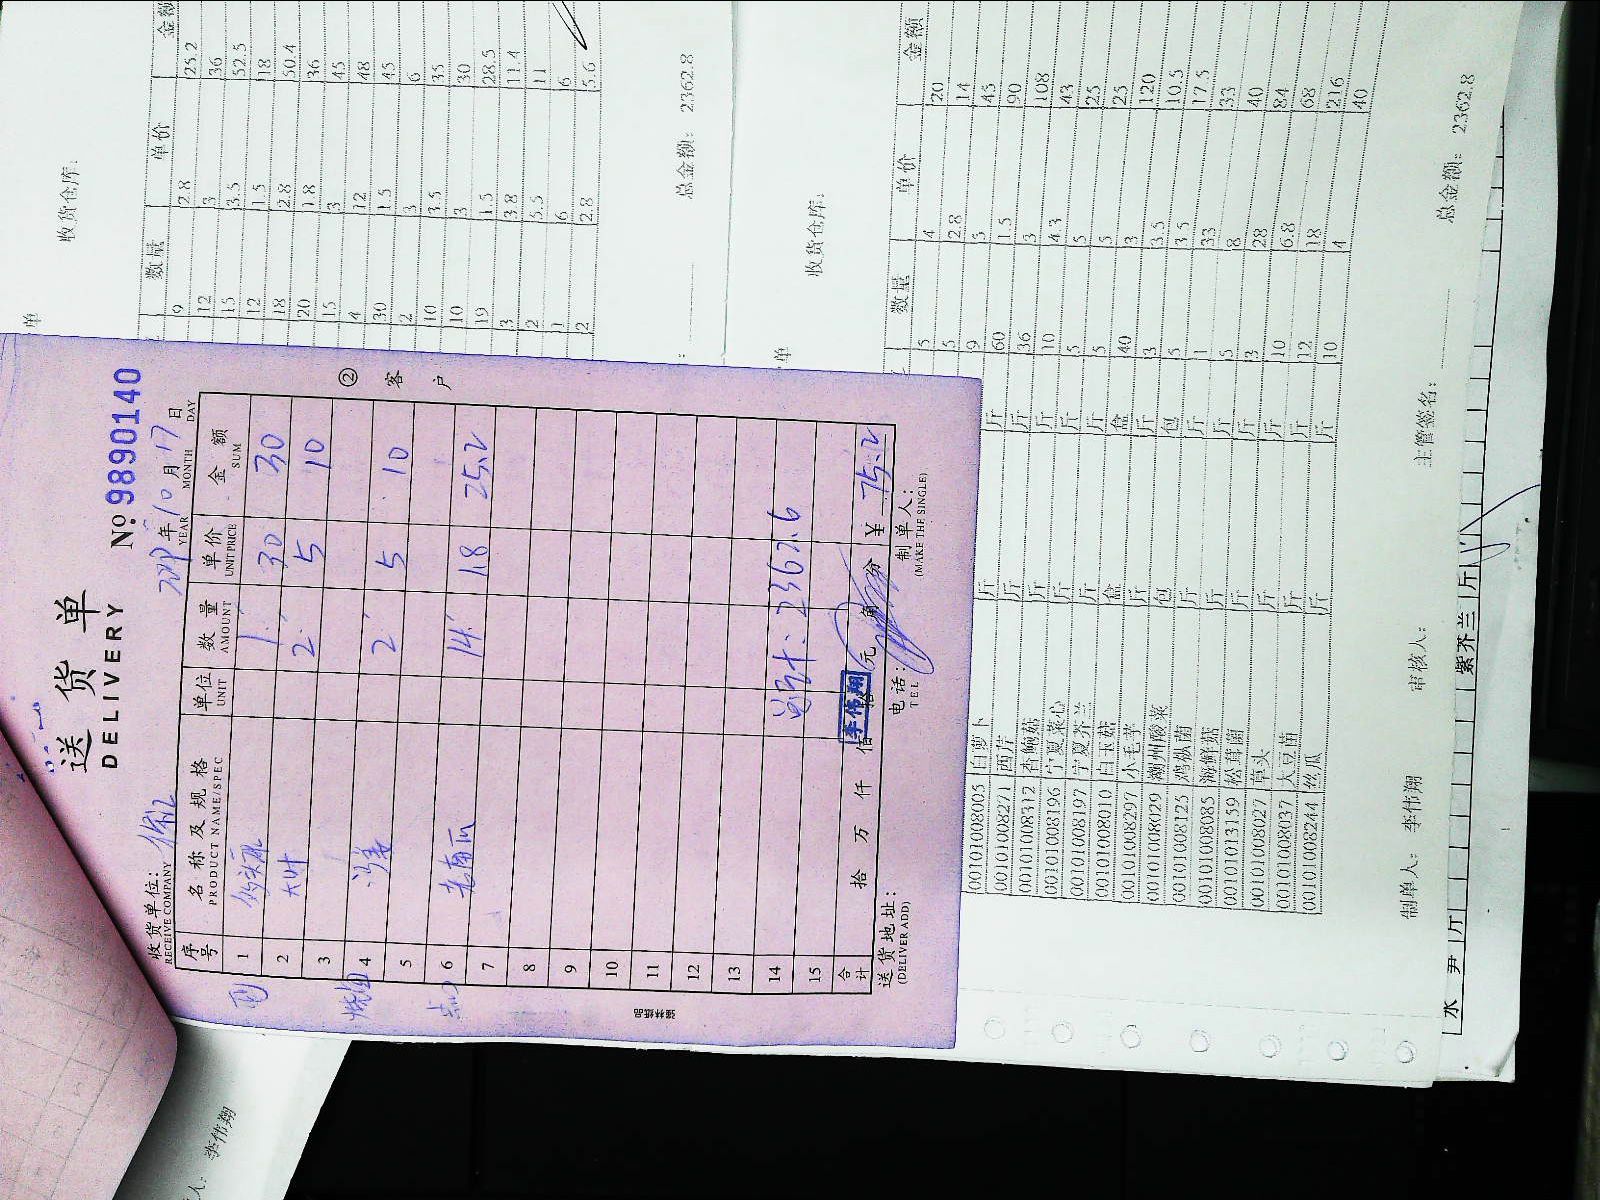 送货单
DELIVERY
No. 9890140
收货单位：
RECEIVE COMPANY
年 10 月 17 日
YEAR MONTH DAY
序号 名称及规格 单位 数量 单价 金额
PRODUCT NAME/SPEC UNIT AMOUNT UNIT PRICE SUM
1 1 30 30
2 大叶 2 5 10
3
4 2 5 10
5
6 老南瓜 14 1.8 25.2
7
8
9
10
11
12
13
14
15
合计 拾 万 仟 佰 元 角 分 ¥ 75.2
李伟翔
送货地址：
(DELIVER ADD)
电话：
TEL
制单人：
(MAKE THE SINGLE)
② 客户
收货仓库：
数量 单价 金额
9 2.8 25.2
12 3 36
15 3.5 52.5
12 1.5 18
18 2.8 50.4
20 1.8 36
15 3 45
4 12 48
30 1.5 45
2 3 6
10 3.5 35
10 3 30
19 1.5 28.5
3 3.8 11.4
2 5.5 11
1 6 6
2 2.8 5.6
总金额： 2362.8
单
收货仓库：
数量 单价 金额
5 4 20
5 2.8 14
9 5 45
00101008005 白萝卜 斤 斤 60 1.5 90
00101008271 西芹 斤 斤 36 3 108
00101008312 香鲍菇 斤 斤 10 4.3 43
00101008196 宁夏菜心 斤 斤 5 5 25
00101008197 宁夏芥兰 斤 斤 5 5 25
00101008010 白玉菇 盒 盒 40 3 120
00101008297 小毛芋 斤 斤 3 3.5 10.5
00101008029 潮州酸菜 包 包 5 3.5 17.5
00101008125 鸡枞菌 斤 斤 1 33 33
00101008085 海鲜菇 斤 斤 5 8 40
00101013159 松茸菌 斤 斤 3 28 84
00101008027 草头 斤 斤 10 6.8 68
00101008037 大豆苗 斤 斤 12 18 216
00101008244 丝瓜 斤 斤 10 4 40
总金额： 2362.8
制单人： 李伟翔 审核人： 主管签名：
紫芥兰 斤
李伟翔